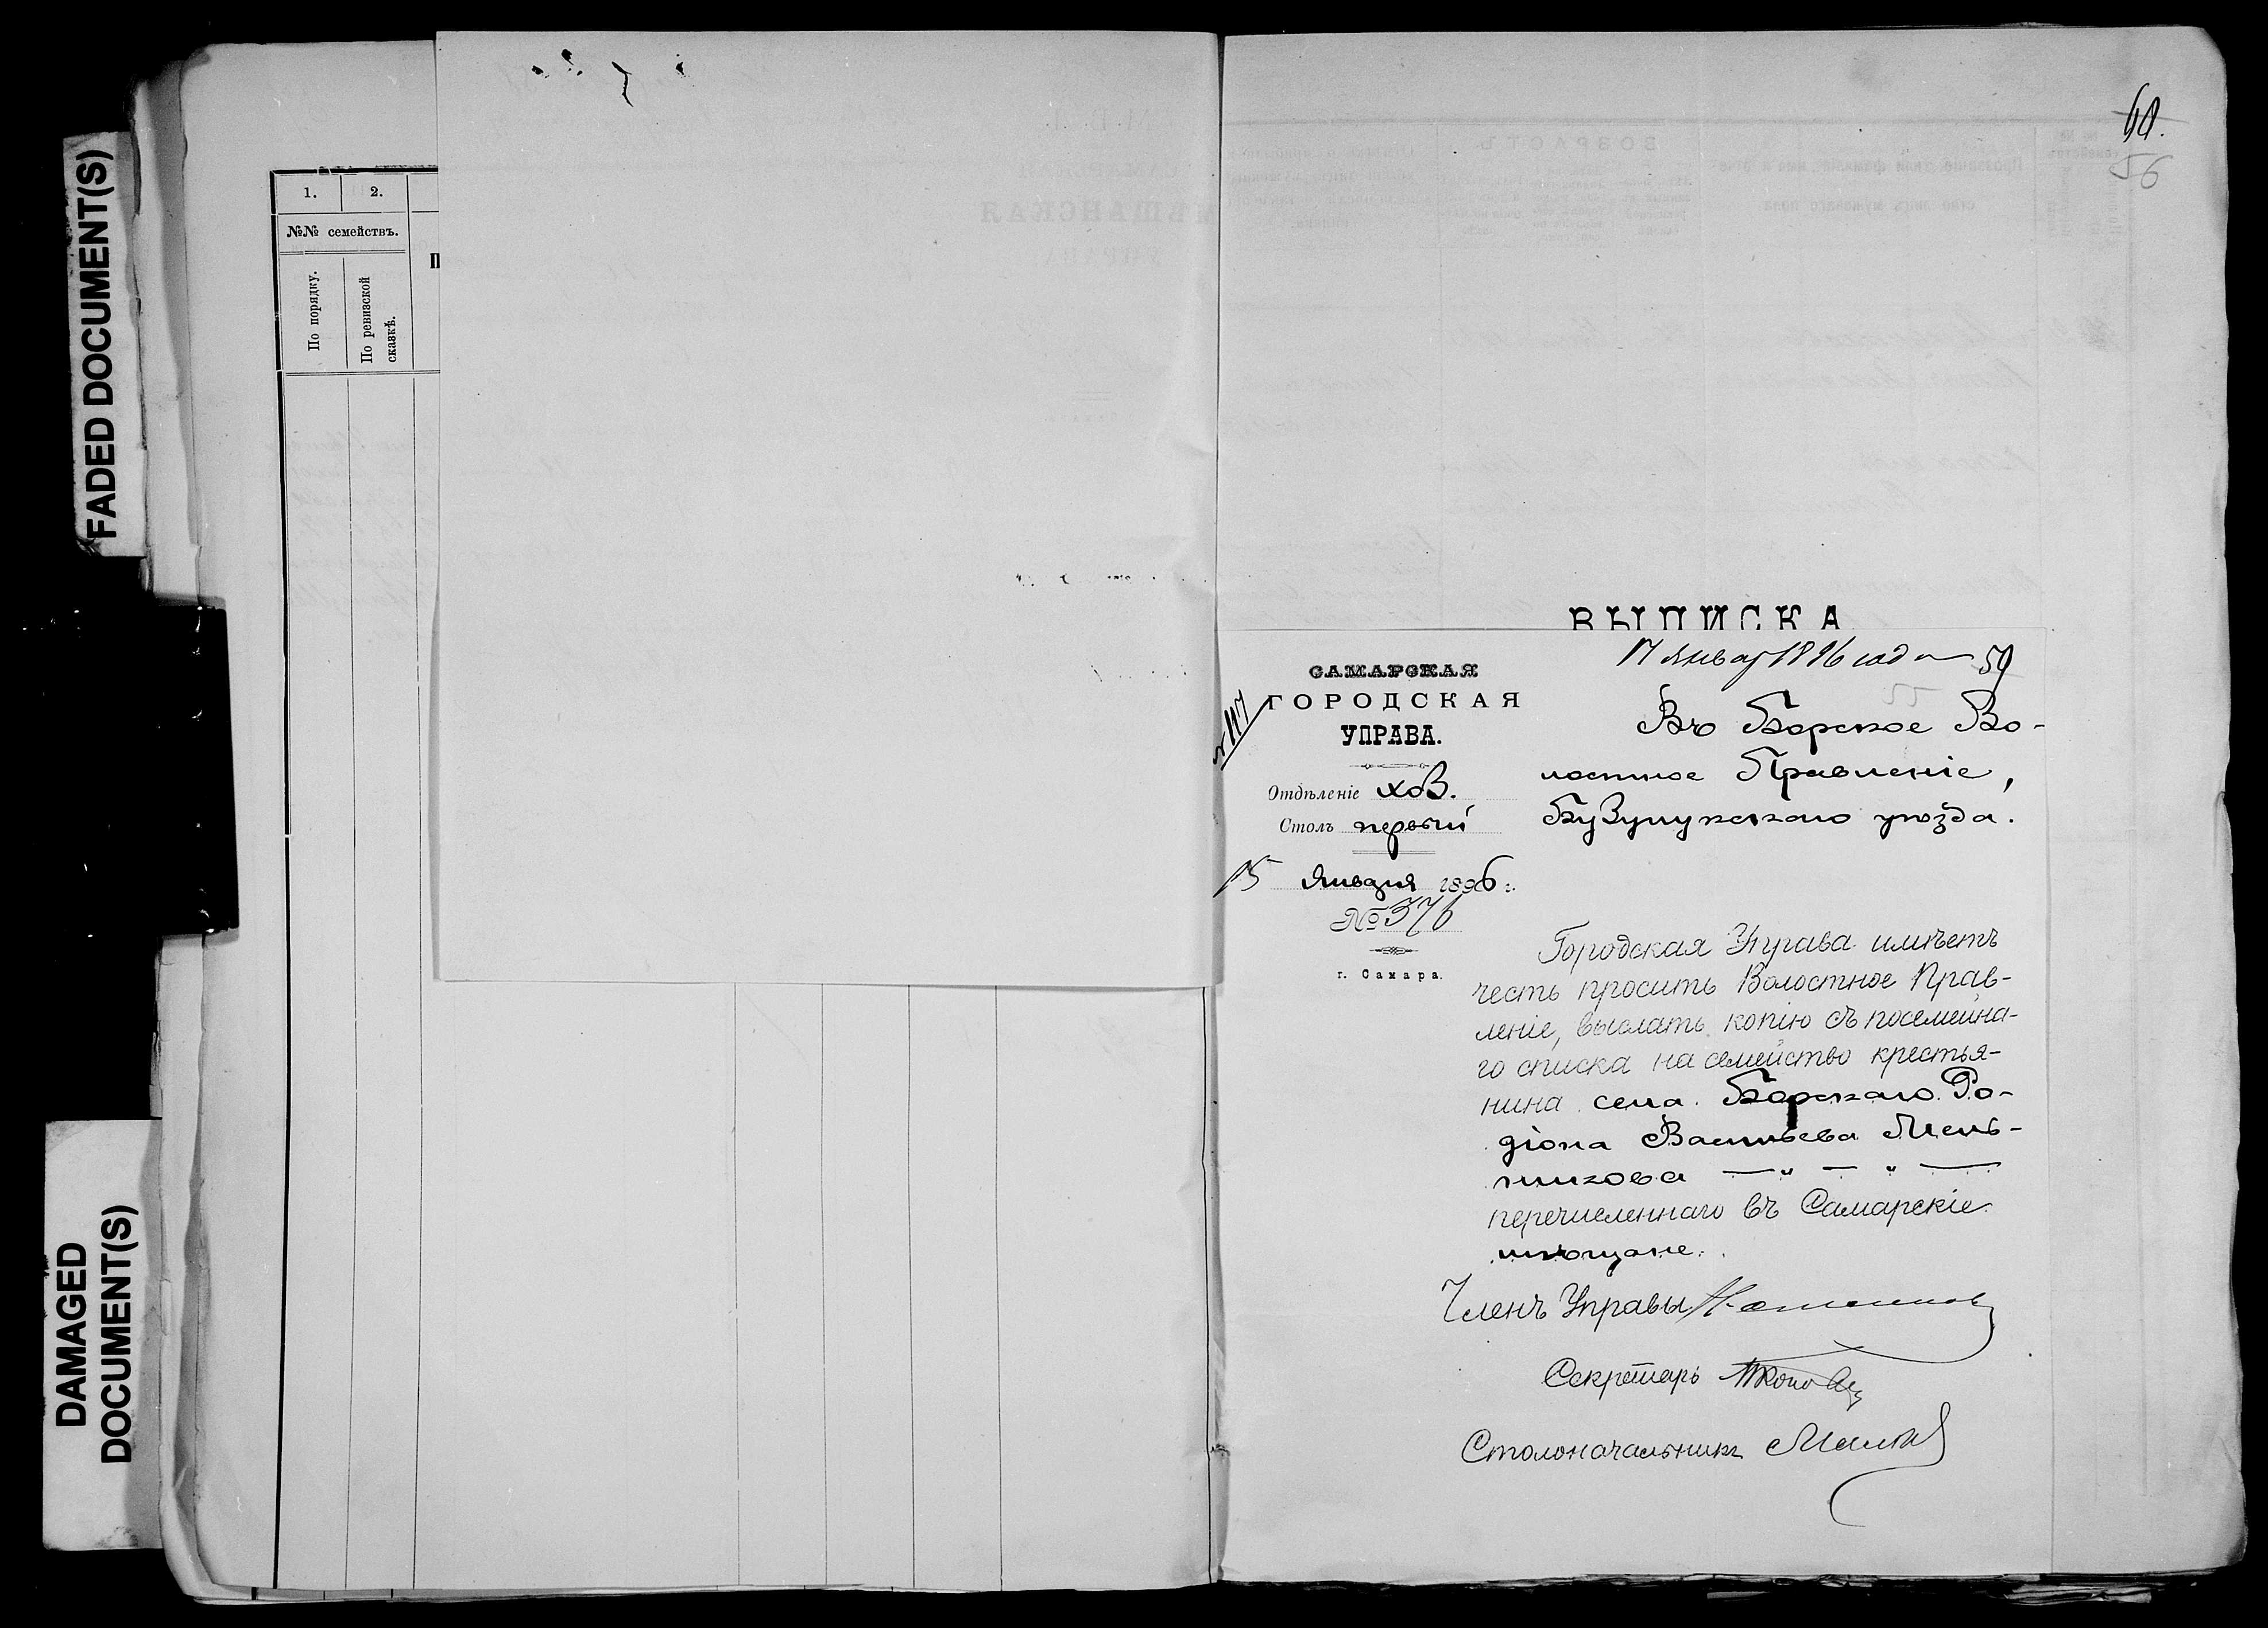 FADED DOCUMENT(S)
DAMAGED
DOCUMENT(S)
1. 2.
№№ семействъ.
По порядку.
По ревизской
сказкѣ.
П
60.
56
ВЫПИСКА
17 января 1896 года 59
55
№ 117
САМАРСКАЯ
ГОРОДСКАЯ
УПРАВА.
Отдѣленіе хоз.
Столъ первый
15 Января 1896 г.
№ 376
г. Самара.
Въ Борское Во-
лостное Правленіе,
Бузулукскаго уѣзда.
Городская Управа имѣетъ
честь просить Волостное Прав-
леніе, выслать копію съ посемейна-
го списка на семейство крестья-
нина села Борскаго Ро-
діона Васильева Мель-
никова — „ — „ —
перечисленнаго въ Самарскіе
мѣщане.
Членъ Управы
Секретарь
Столоначальникъ